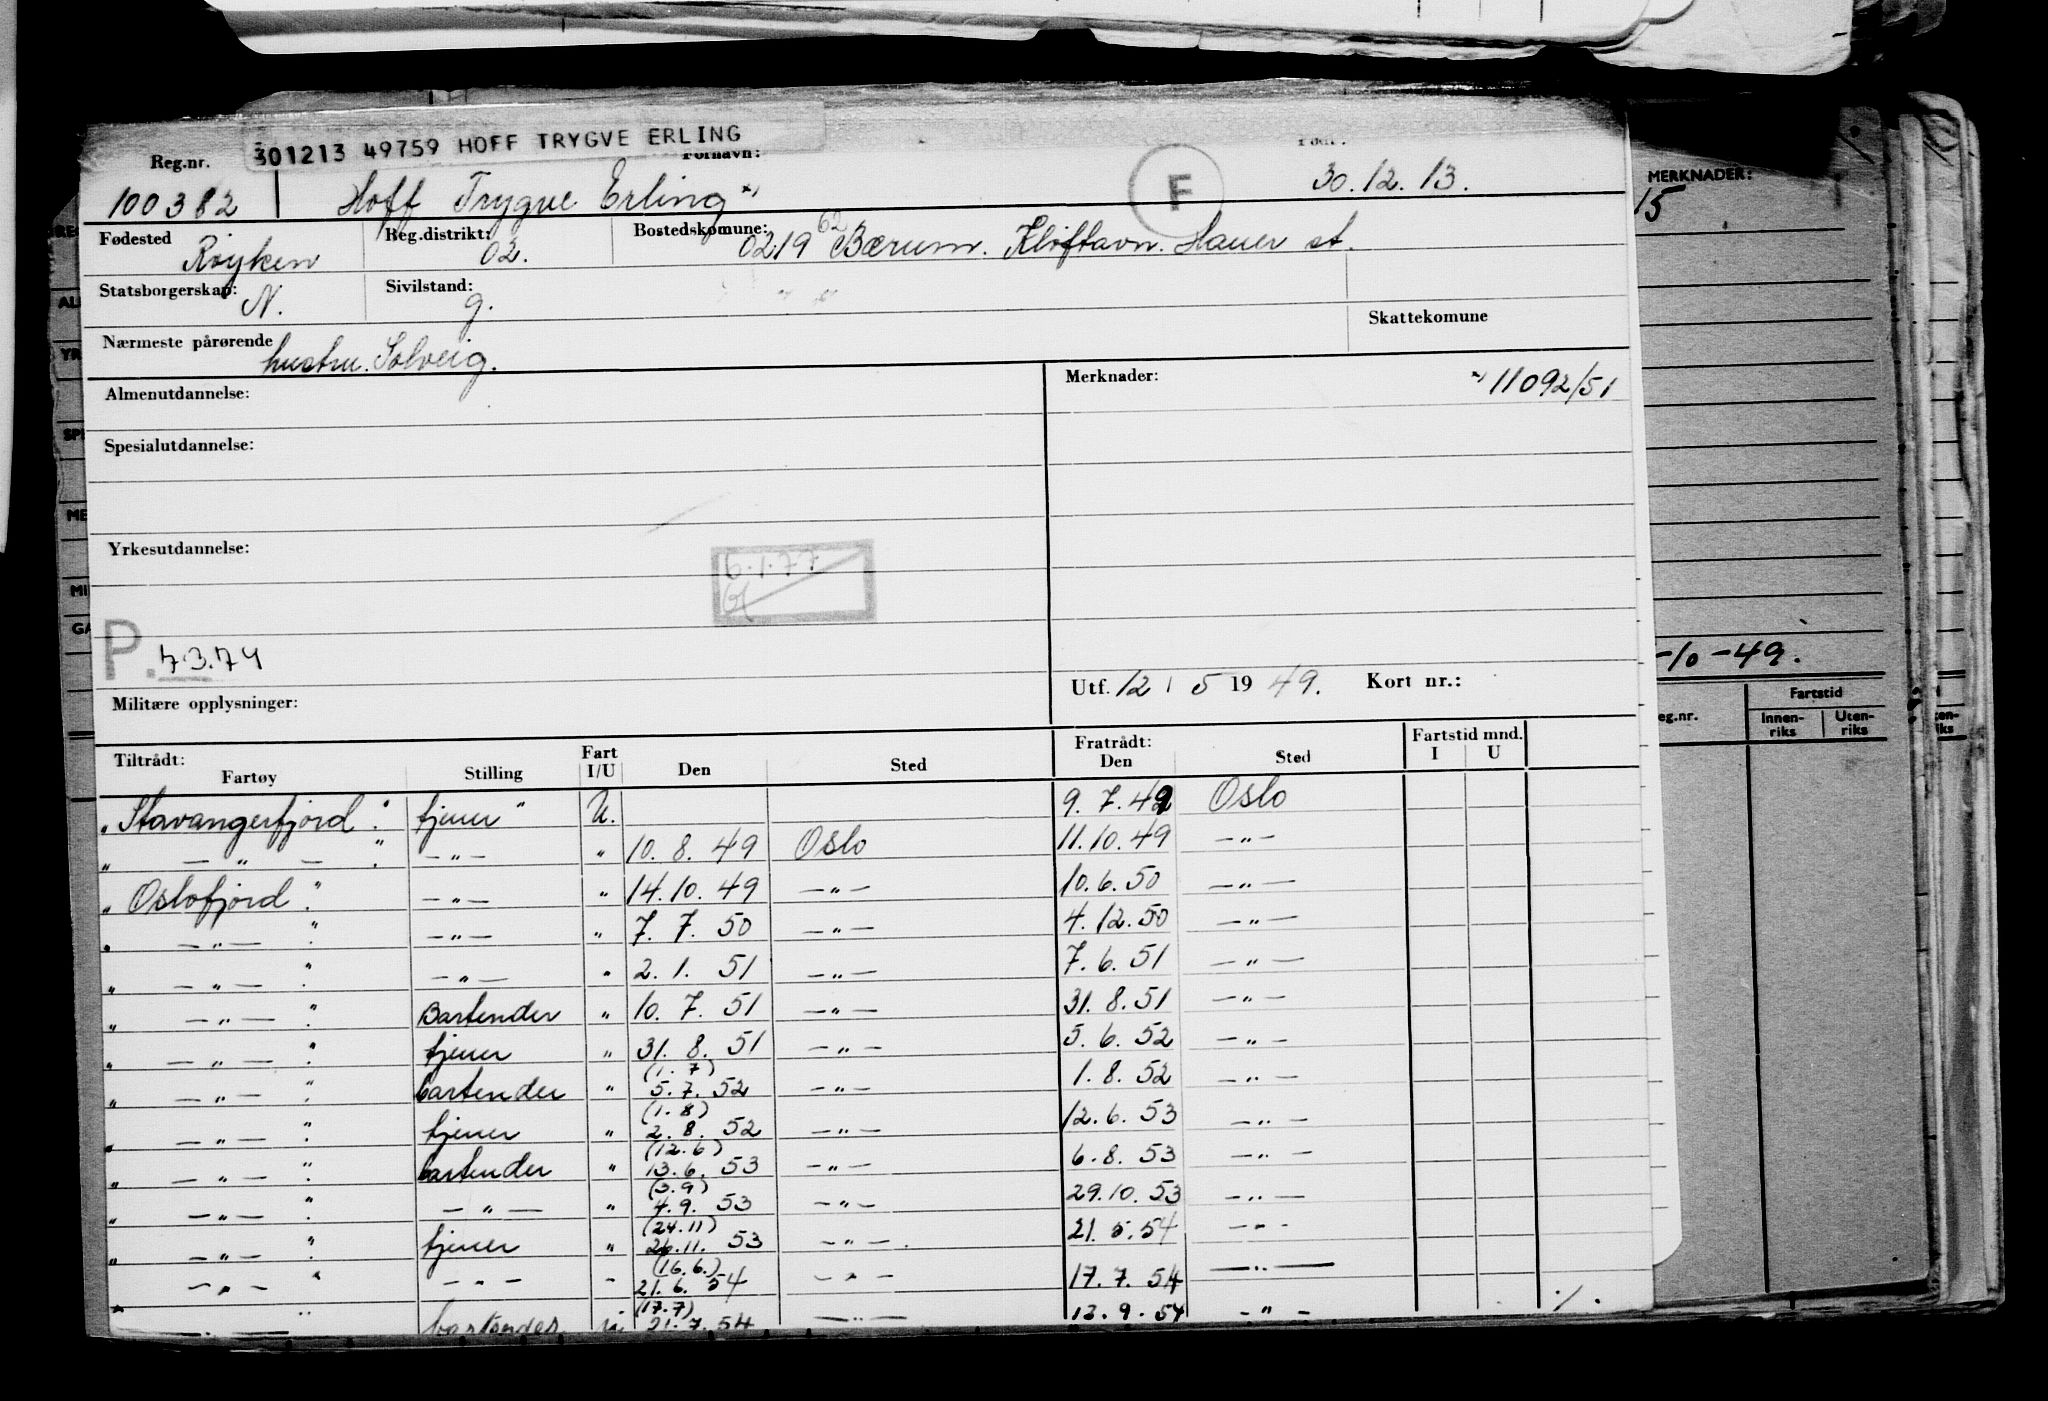 301213 49759 HOFF TRYGVE ERLING
Reg.nr. Fornavn: Født:
100382 Hoff Trygve Erling x) F 30.12.13.
Fødested Reg.distrikt: Bostedskomune:
Røyken 02. 0219 62 Bærum.
Statsborgerskap: Sivilstand:
N. g.
Nærmeste pårørende Skattekomune
hustru. Solveig.
Almenutdannelse: Merknader: x) 11092/51
Spesialutdannelse:
Yrkesutdannelse:
6.1.77
P. 7.3.74
Utf. 12 / 5 19 49. Kort nr.:
Militære opplysninger:
Tiltrådt: Fart Fratrådt: Fartstid mnd.
Fartøy Stilling I/U Den Sted Den Sted I U
„ Stavangerfjord ". tjener " U. 9. 7. 49 Oslo
„ — „ — ". — „ — „ 10. 8. 49 Oslo 11. 10. 49 — „ —
„ Oslofjord ". — „ — „ 14. 10. 49 — „ — 10. 6. 50 — „ —
„ — „ — ". — „ — „ 7. 7. 50 — „ — 4. 12. 50 — „ —
„ — „ — ". — „ — „ 2. 1. 51 — „ — 7. 6. 51 — „ —
„ — „ — ". Bartender „ 10. 7. 51 — „ — 31. 8. 51 — „ —
„ — „ — ". tjener „ 31. 8. 51 — „ — 5. 6. 52 — „ —
(1. 7)
„ — „ — ". bartender „ 5. 7. 52 — „ — 1. 8. 52 — „ —
(1. 8)
„ — „ — ". tjener „ 2. 8. 52 — „ — 12. 6. 53 — „ —
(12. 6)
„ — „ — ". bartender „ 13. 6. 53 — „ — 6. 8. 53 — „ —
(3. 9)
„ — „ — ". — „ — „ 4. 9. 53 — „ — 29. 10. 53 — „ —
(24. 11)
„ — „ — ". tjener „ 26. 11. 53 — „ — 21. 5. 54 — „ —
(16. 6.)
— „ — " — „ — – 21. 6. 54 — „ — 17. 7. 54 — „ —
(17. 7)
" bartender U 21. 7. 54 — „ — 13. 9. 54 — „ —
./.
MERKNADER:
15
-10-49.
Fartstid
eg.nr. Innen-riks Uten-riks